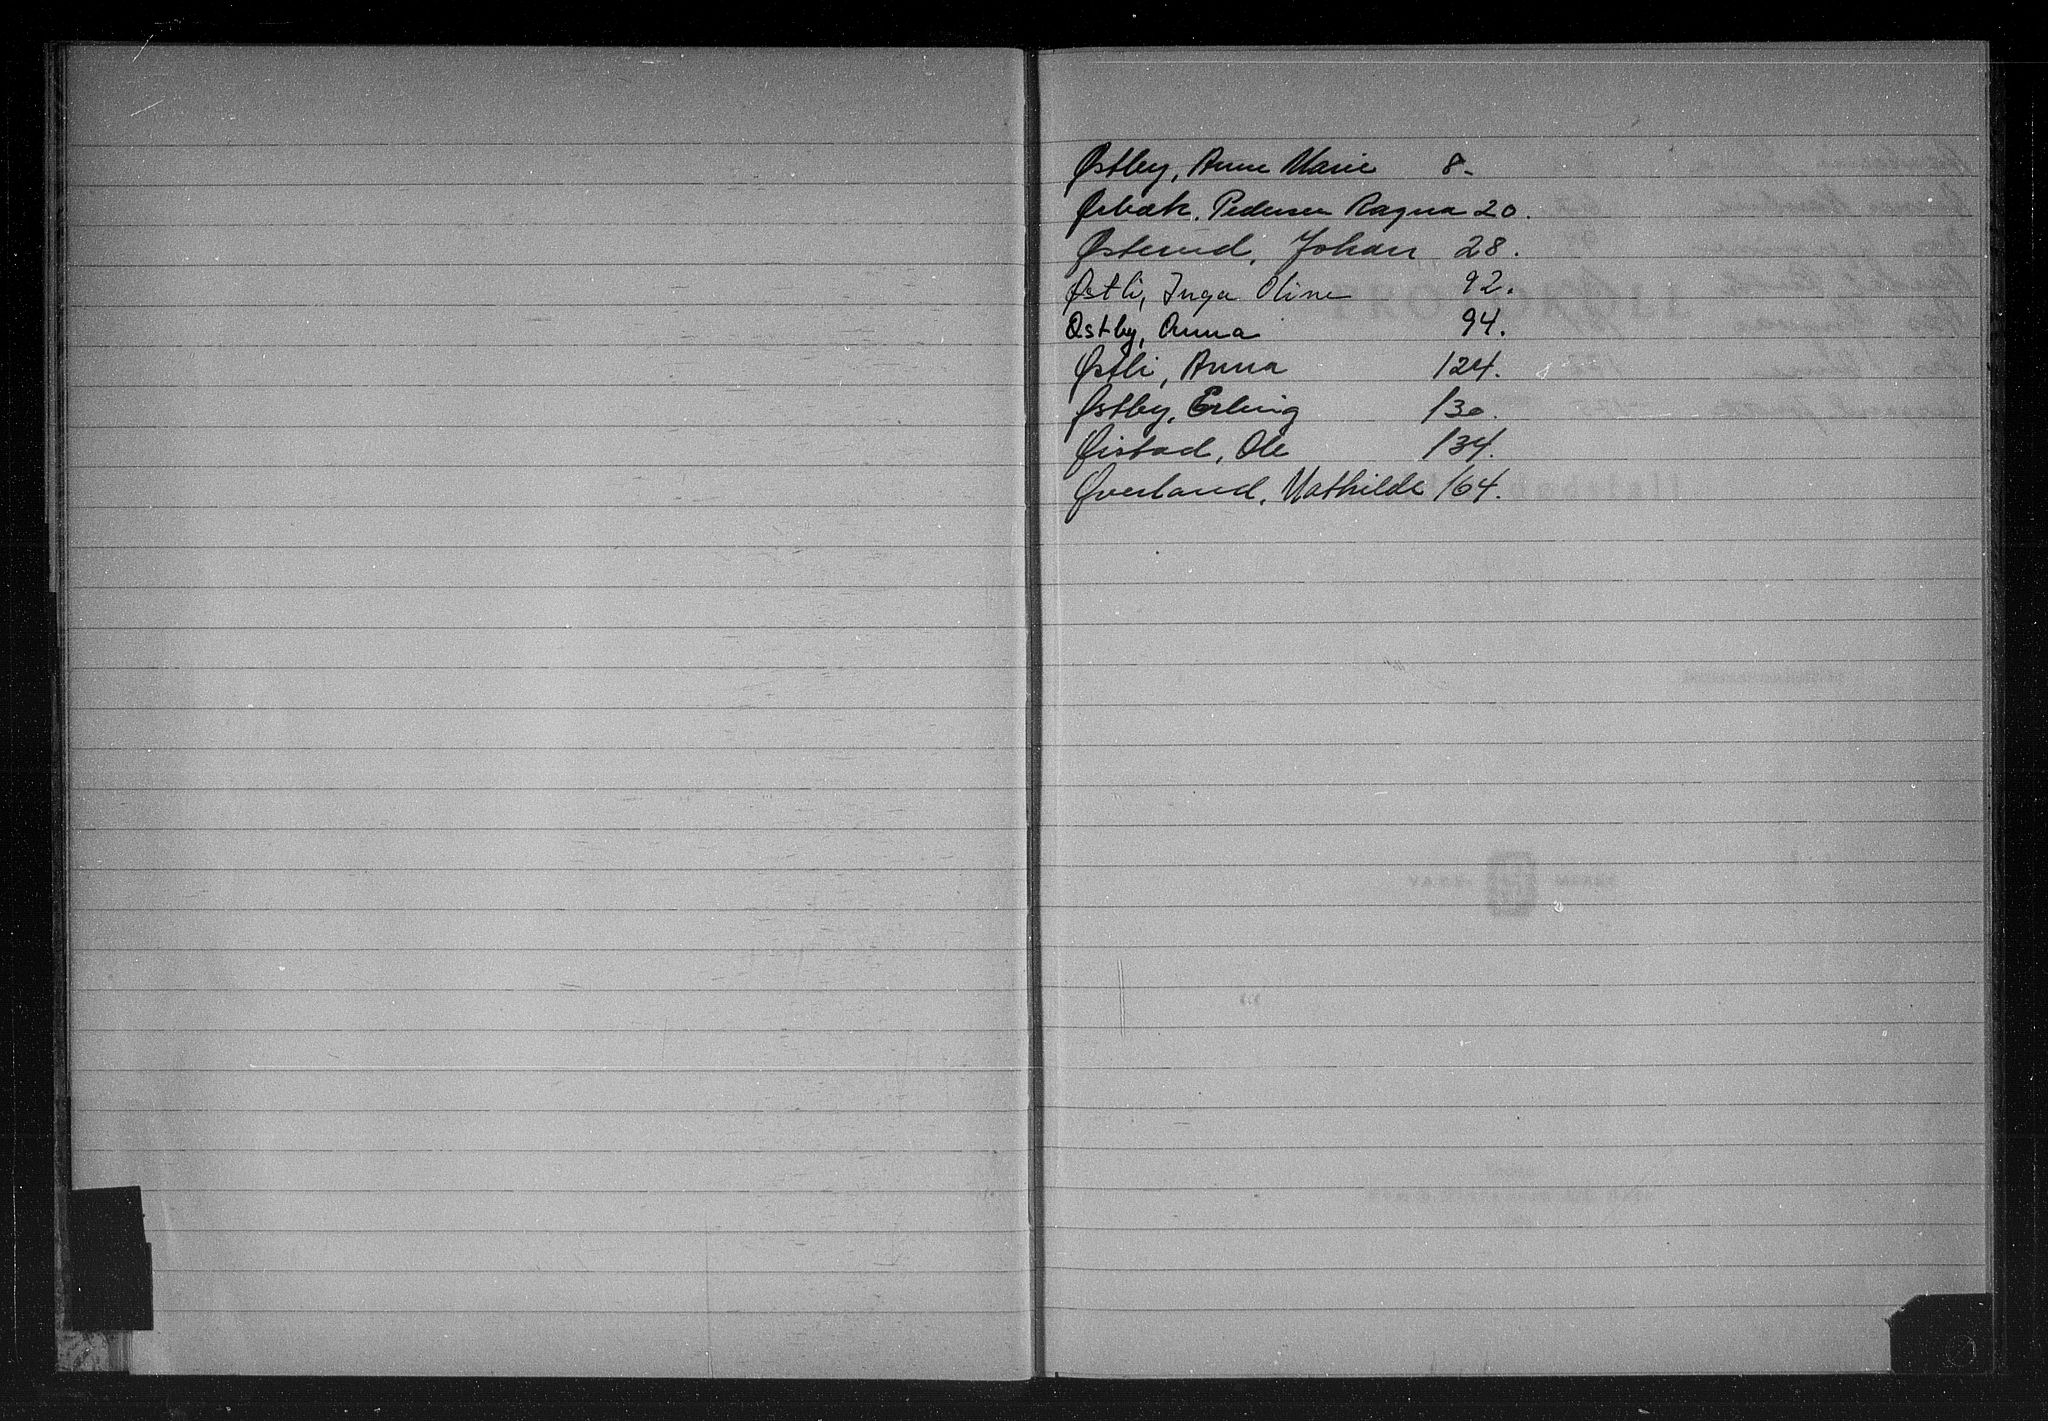 Østby, Anne Marie 8-
Ørbæk, Pedersen Ragna 20.
Østerud, Johan 28.
Østli, Inga Oline 92.
Østby, Anna 94.
Østli, Anna 124.
Østby, Erling 130.
Øistad, Ole 134.
Øverland, Mathilde 164.